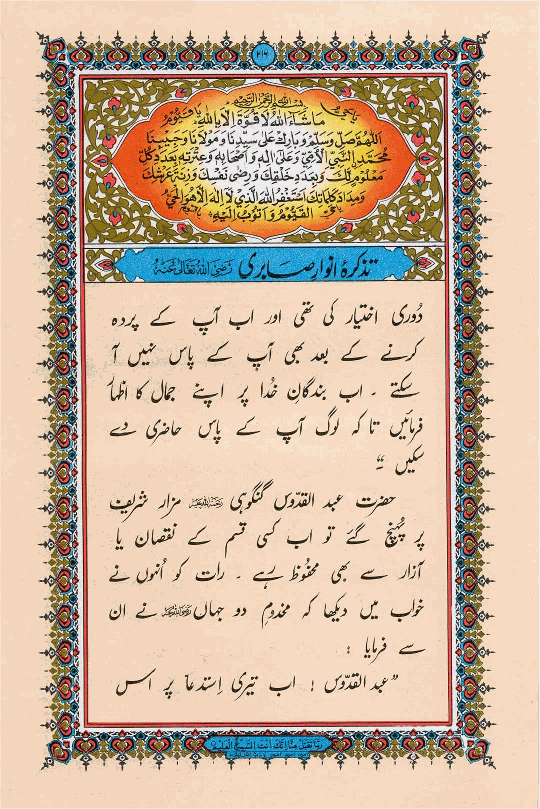 ۲۱۶
بسم الله الرحمن الرحيم
يا حي يا قيوم
مَا شَاءَ اللهُ لَا قُوَّةَ إِلَّا بِاللهِ
اَللّٰهُمَّ صَلِّ وَسَلِّمْ وَبَارِكْ عَلٰى سَيِّدِنَا وَمَوْلَانَا وَحَبِيْبِنَا
مُحَمَّدٍ النَّبِيِّ الْأُمِّيِّ وَعَلٰى اٰلِهٖ وَاَصْحَابِهٖ وَعِتْرَتِهٖ بِعَدَدِ كُلِّ
مَعْلُوْمٍ لَّكَ وَبِعَدَدِ خَلْقِكَ وَرِضٰى نَفْسِكَ وَزِنَةَ عَرْشِكَ
وَمِدَادَ كَلِمَاتِكَ اَسْتَغْفِرُ اللهَ الَّذِيْ لَا اِلٰهَ اِلَّا هُوَ الْحَيُّ
الْقَيُّوْمُ وَاَتُوْبُ اِلَيْهِ
يا حي يا قيوم
تذکرۂ انوارِ صابری رَضِىَ اللهُ تَعَالٰى عَنْهُ
دُوری اختیار کی تھی اور اب آپ کے پردہ
کرنے کے بعد بھی آپ کے پاس نہیں آ
سکتے ۔ اب بندگانِ خُدا پر اپنے جمال کا اظہار
فرمائیں تا کہ لوگ آپ کے پاس حاضری دے
سکیں ۔“
حضرت عبد القدّوس گنگوہی رحمۃ اللہ علیہ مزار شریف
پر پہُنچ گئے تو اب کسی قسم کے نقصان یا
آزار سے بھی محفُوظ رہے ۔ رات کو اُنہوں نے
خواب میں دیکھا کہ مخدومِ دو جہاں نے ان
سے فرمایا :
”عبد القدّوس ! اب تیری اِستدعا پر اس
رَبَّنَا تَقَبَّلْ مِنَّا اِنَّكَ اَنْتَ السَّمِيْعُ الْعَلِيْمُ